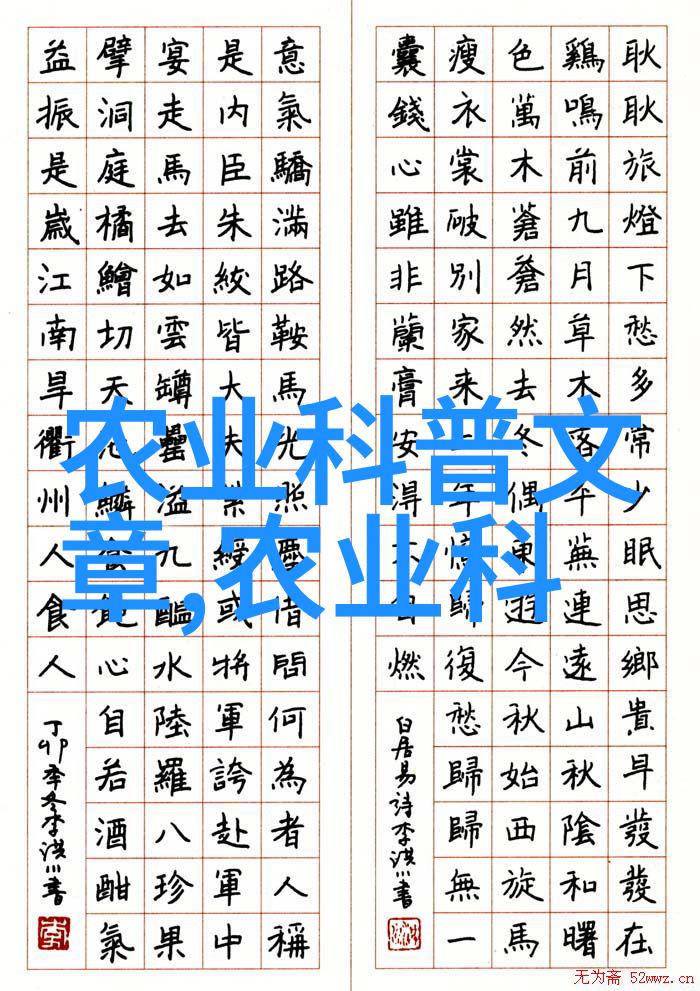 耿耿旅燈下愁多常少眠思鄉貴早發發在
鷄鳴前九月草木落平蕪連遠山秋陰和曙
色萬木蒼蒼然去冬偶東遊今秋始西旋馬
瘦衣裳破別家來二年憶歸復愁歸歸無一
囊錢心雖非蘭膏安得不自燃
白居易诗李洪川書
意氣驕滿路鞍馬光照塵借問何為者人稱
是内臣朱紱皆大夫紫綬或將軍誇赴軍中
宴走馬去如雲罇罍溢九醞水陸羅八珍果
擘洞庭橘鱠切天池鱗食飽心自若酒酣氣
益振是歲江南旱衢州人食人
丁卯季冬李洪川書
农业科普文
章,农业科
无为斋 52wwz.cn